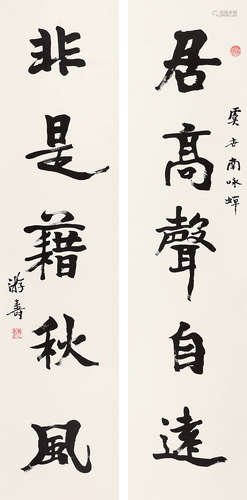 居高聲自遠
虞世南咏蟬
非是藉秋風
游壽